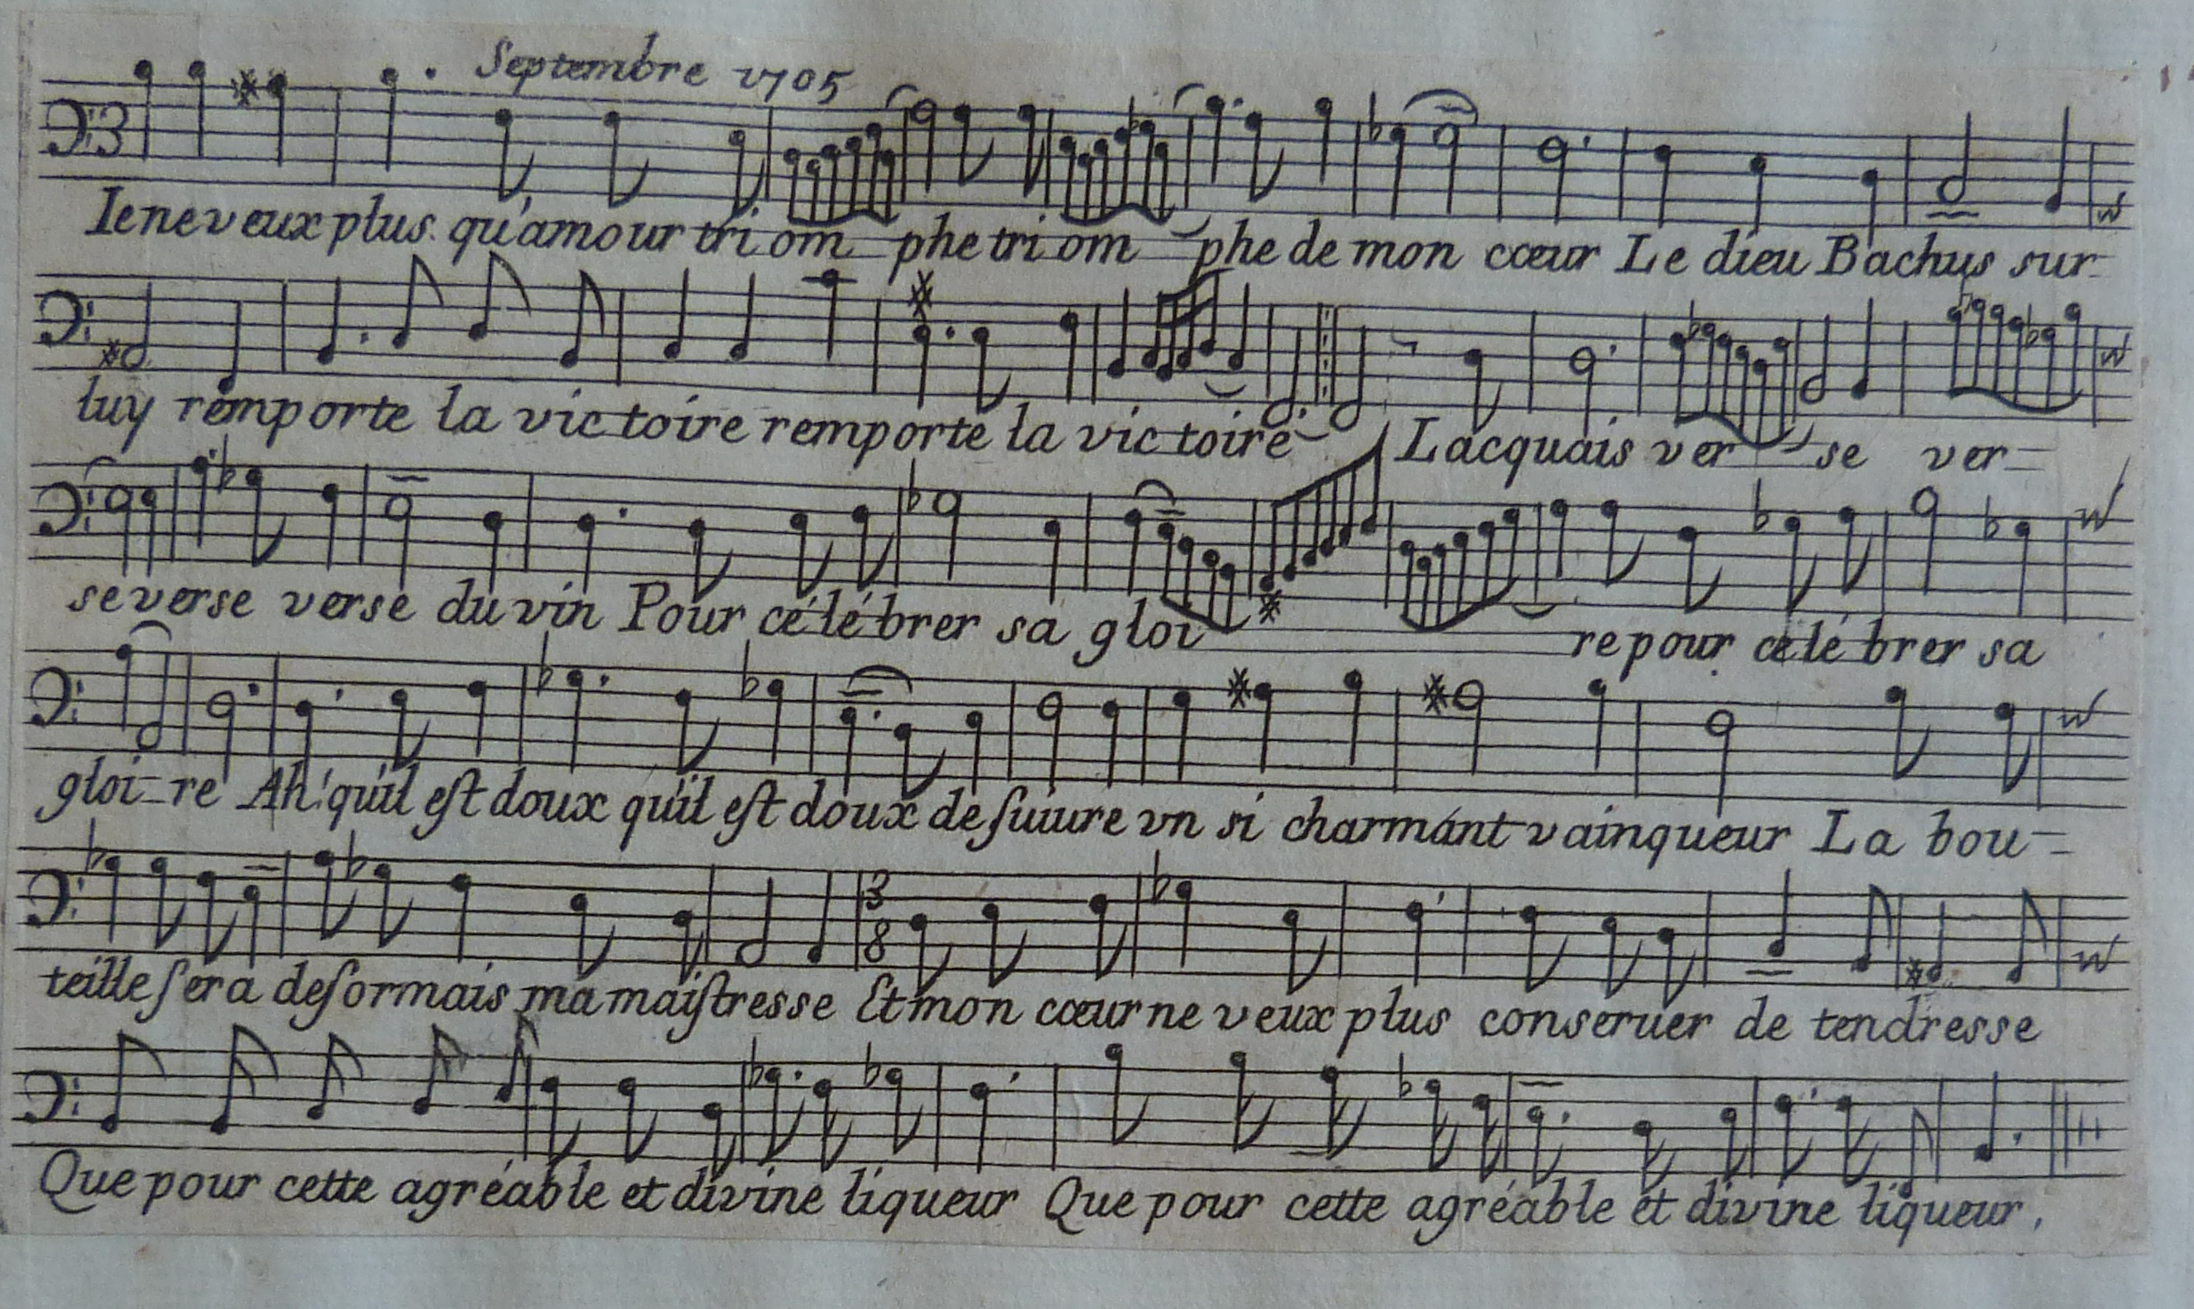 Septembre 1705
3
Ie ne veux plus qu'amour tri om phe tri om phe de mon cœur Le dieu Bachus sur-
luy remporte la vic toire remporte la vic toire Lacquais ver se ver-
se verse verse du vin Pour célébrer sa gloi re pour celé brer sa
gloi-re Ah! qu'il eſt doux qu'il eſt doux de ſuiure vn si charmant vainqueur La bou-
3
8
teille ſera deſormais ma maiſtresse Et mon cœur ne veux plus conseruer de tendresse
Que pour cette agréable et divine liqueur Que pour cette agréable et divine liqueur.